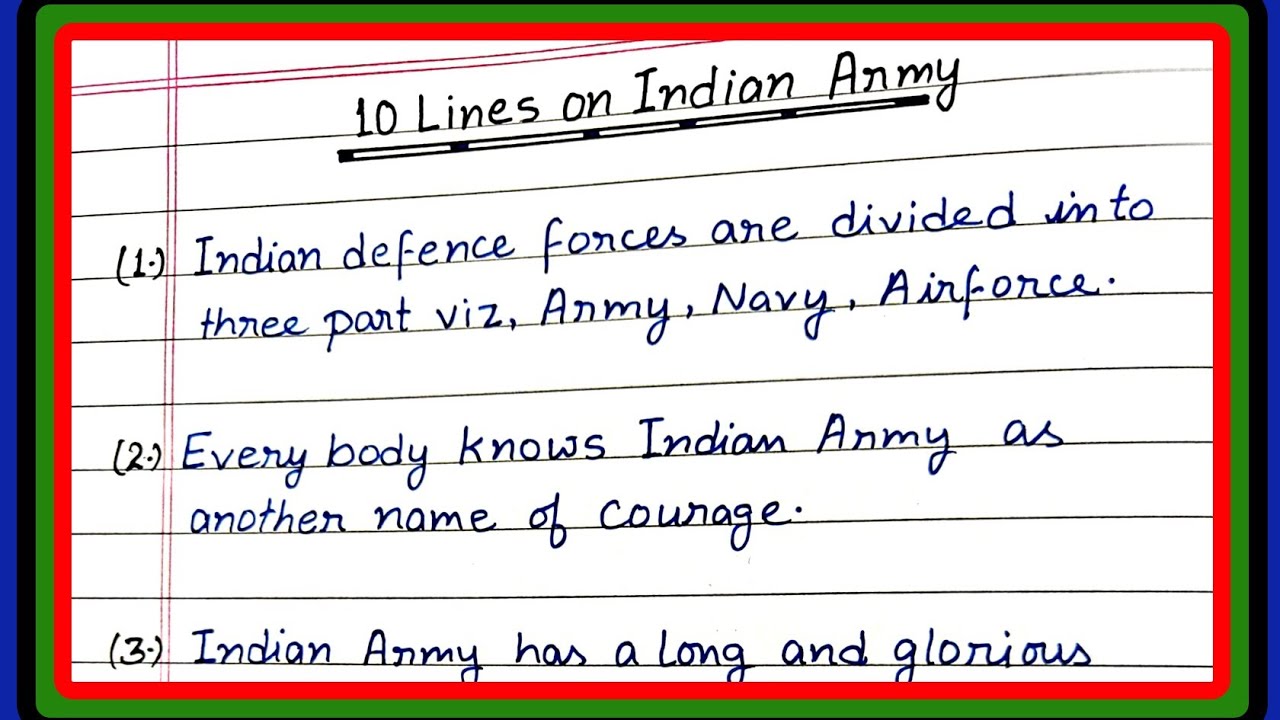 10 Lines on Indian Army
(1.) Indian defence forces are divided into
three part viz, Army, Navy, Airforce.
(2.) Every body knows Indian Army as
another name of courage.
(3.) Indian Army has a long and glorious